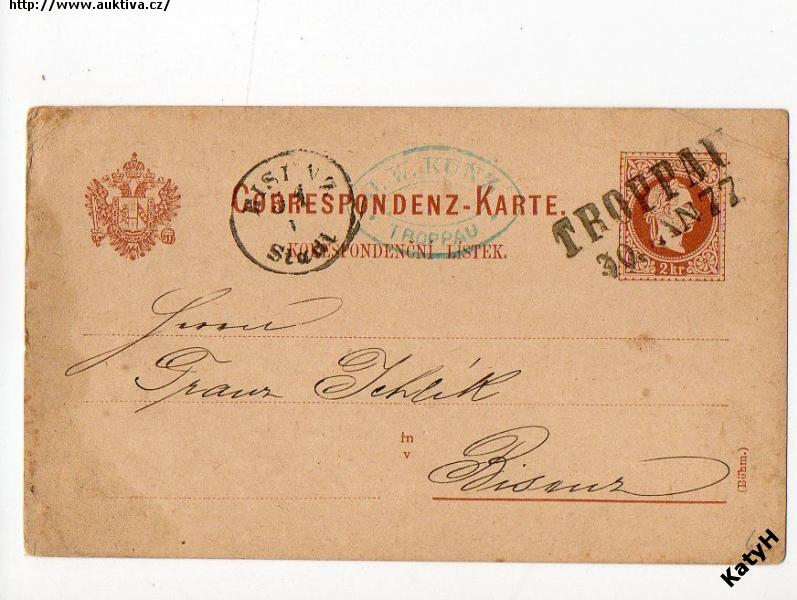 http://www.auktiva.cz/
CORRESPONDENZ-KARTE.
KORESPONDENČNÍ LÍSTEK.
BISENZ
Stadt
J. W. KUNZ
TROPPAU
TROPPAU
30. JAN 77
2 kr
Herrn
Franz
in
v
Bisenz
(Böhm.)
KatyH